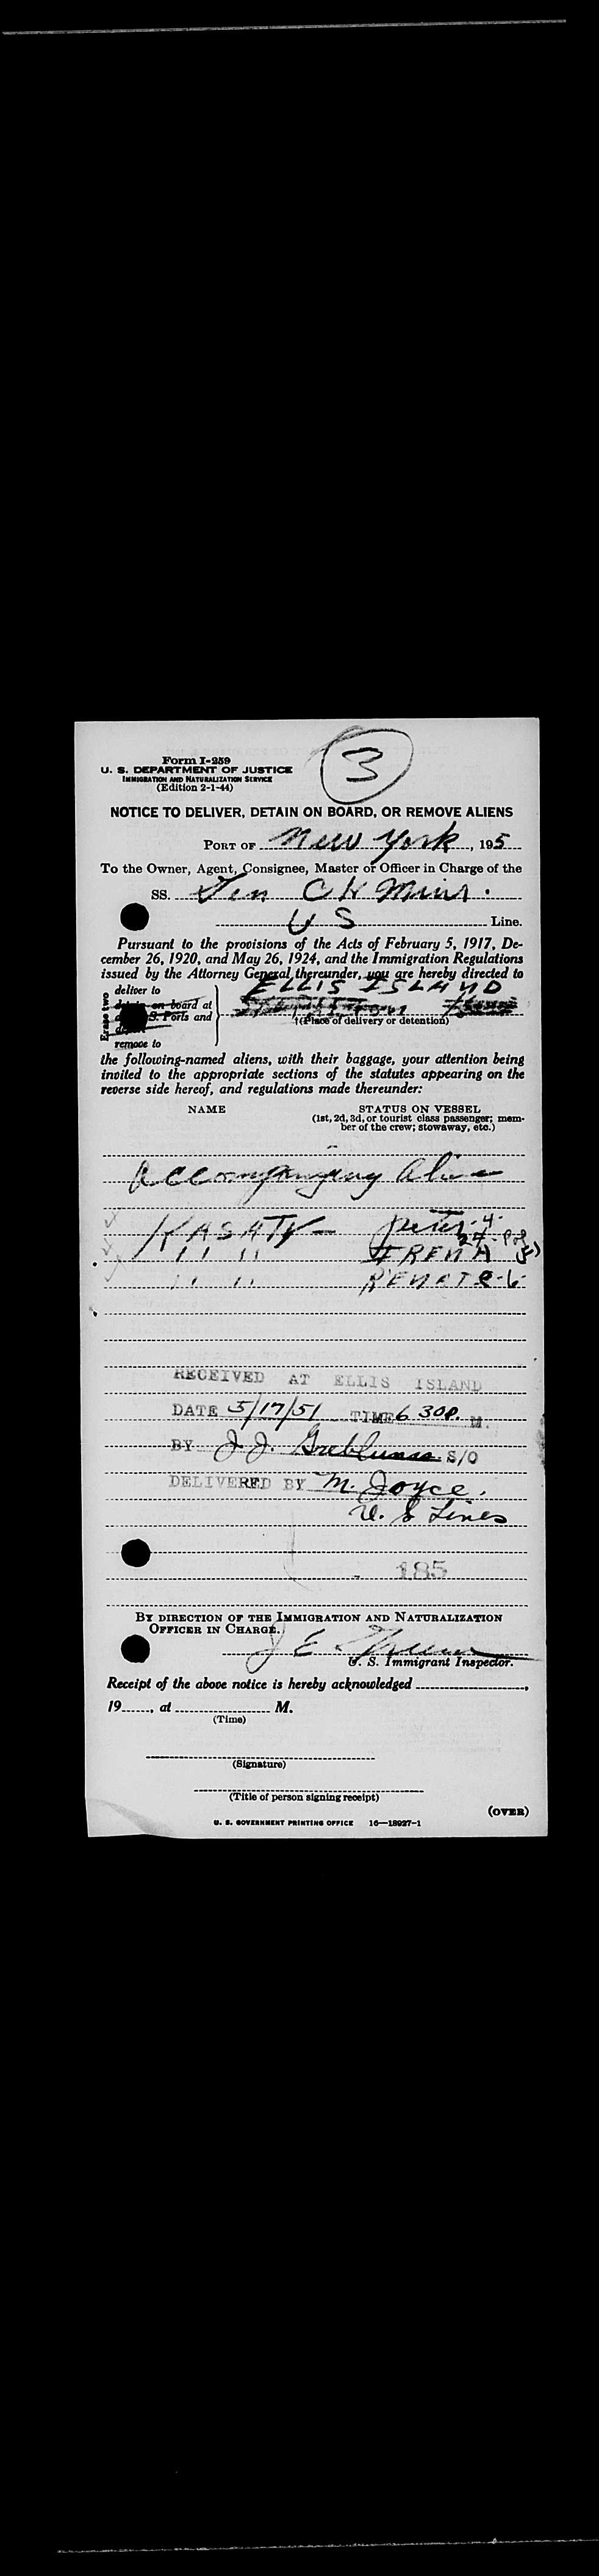 3
Form I-259
U. S. DEPARTMENT OF JUSTICE
IMMIGRATION AND NATURALIZATION SERVICE
(Edition 2-1-44)
NOTICE TO DELIVER, DETAIN ON BOARD, OR REMOVE ALIENS
PORT OF New York, 195
To the Owner, Agent, Consignee, Master or Officer in Charge of the
SS. Gen C H Muir.
U S Line.
Pursuant to the provisions of the Acts of February 5, 1917, De-
cember 26, 1920, and May 26, 1924, and the Immigration Regulations
issued by the Attorney General thereunder, you are hereby directed to
Erase two
deliver to
ELLIS ISLAND
detain on board at
S. Ports and
†(Place of delivery or detention)
remove to
the following-named aliens, with their baggage, your attention being
invited to the appropriate sections of the statutes appearing on the
reverse side hereof, and regulations made thereunder:
NAME STATUS ON VESSEL
(1st, 2d, 3d, or tourist class passenger; mem-
ber of the crew; stowaway, etc.)
Accompanying Alien
KASATY - Peter - 4
27 - Pol
" " IRENA
" " RENATE - 6
RECEIVED AT ELLIS ISLAND
DATE 5/17/51 TIME 6 30P. M.
BY J. J. S/O
DELIVERED BY M. Joyce.
U. S Lines
185
BY DIRECTION OF THE IMMIGRATION AND NATURALIZATION
OFFICER IN CHARGE.
J E
U. S. Immigrant Inspector.
Receipt of the above notice is hereby acknowledged,
19, at M.
(Time)
(Signature)
(Title of person signing receipt)
(OVER)
U. S. GOVERNMENT PRINTING OFFICE 16—18927-1